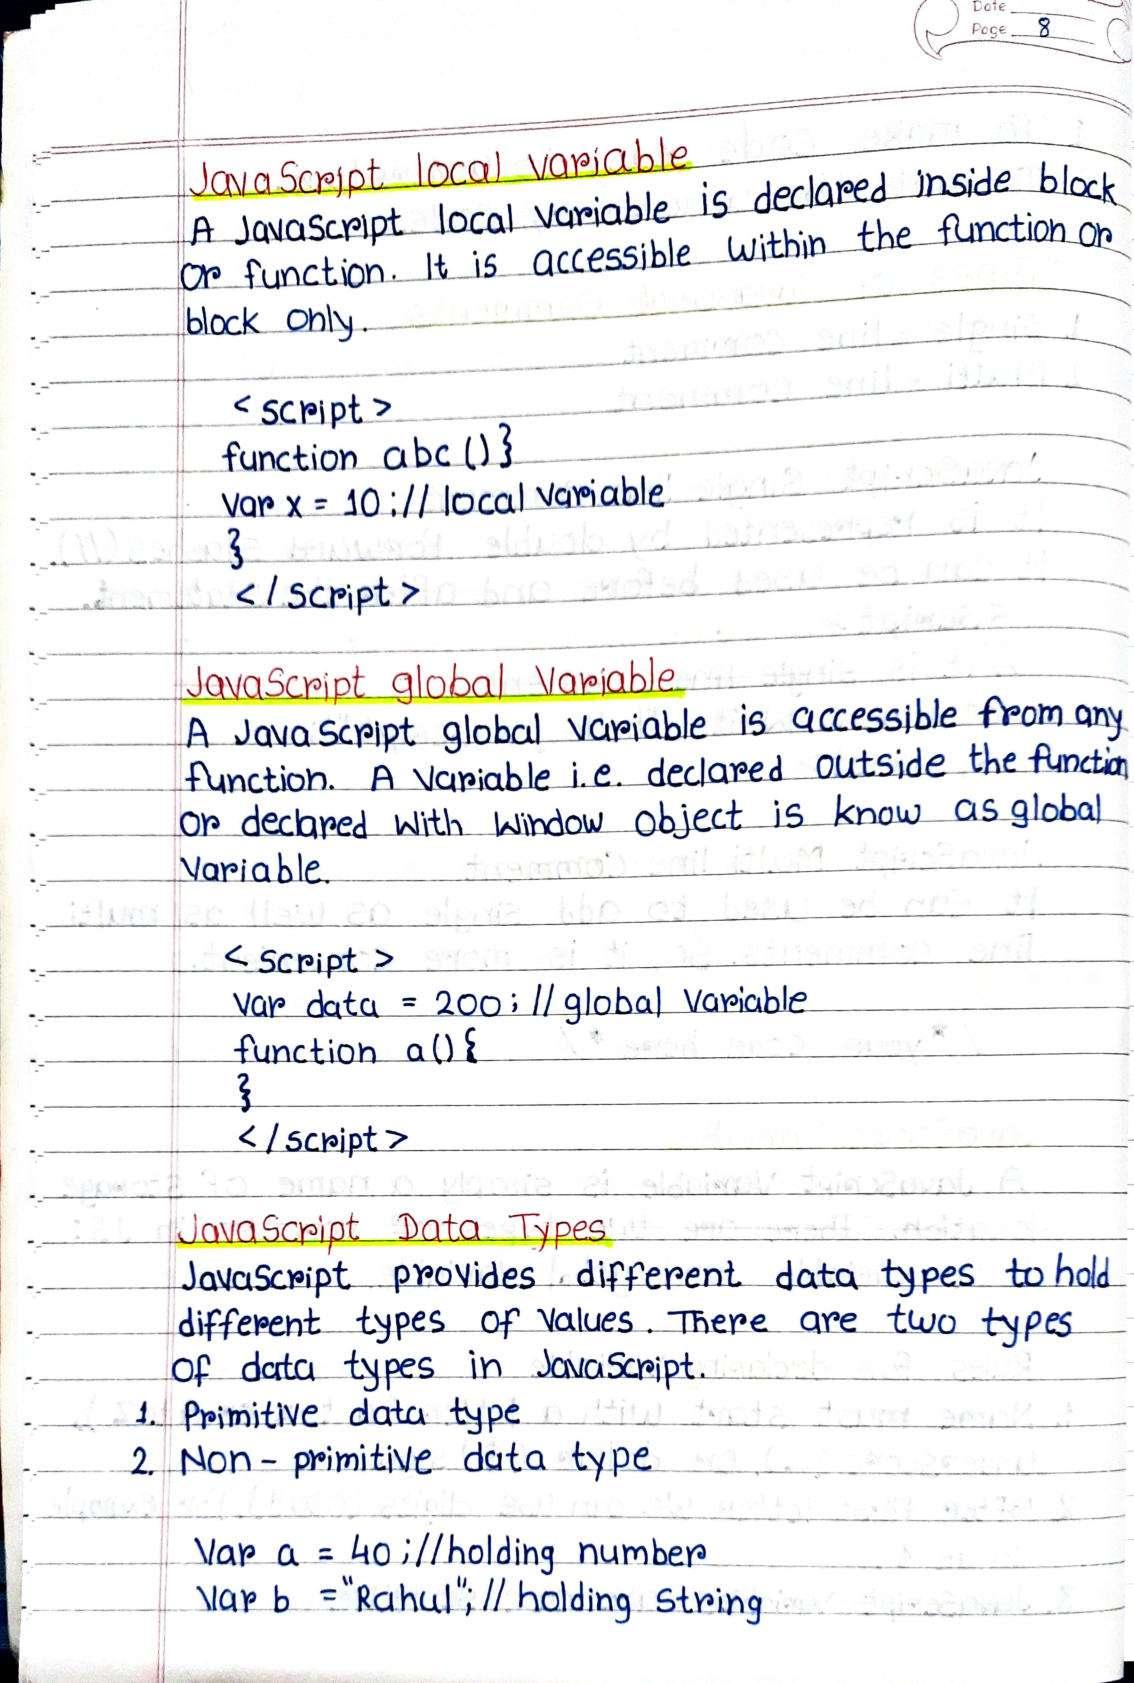 Date
Page 8
JavaScript local variable
A JavaScript local variable is declared inside block
or function. It is accessible within the function or
block only.
<script>
function abc(){
var x = 10; // local variable
}
</script>
JavaScript global Variable
A JavaScript global variable is accessible from any
function. A variable i.e. declared outside the function
or declared with window object is know as global
variable.
<script>
var data = 200; // global variable
function a(){
}
</script>
JavaScript Data Types
JavaScript provides different data types to hold
different types of values. There are two types
of data types in JavaScript.
1. Primitive data type
2. Non-primitive data type
Var a = 40; //holding number
Var b = "Rahul"; // holding String